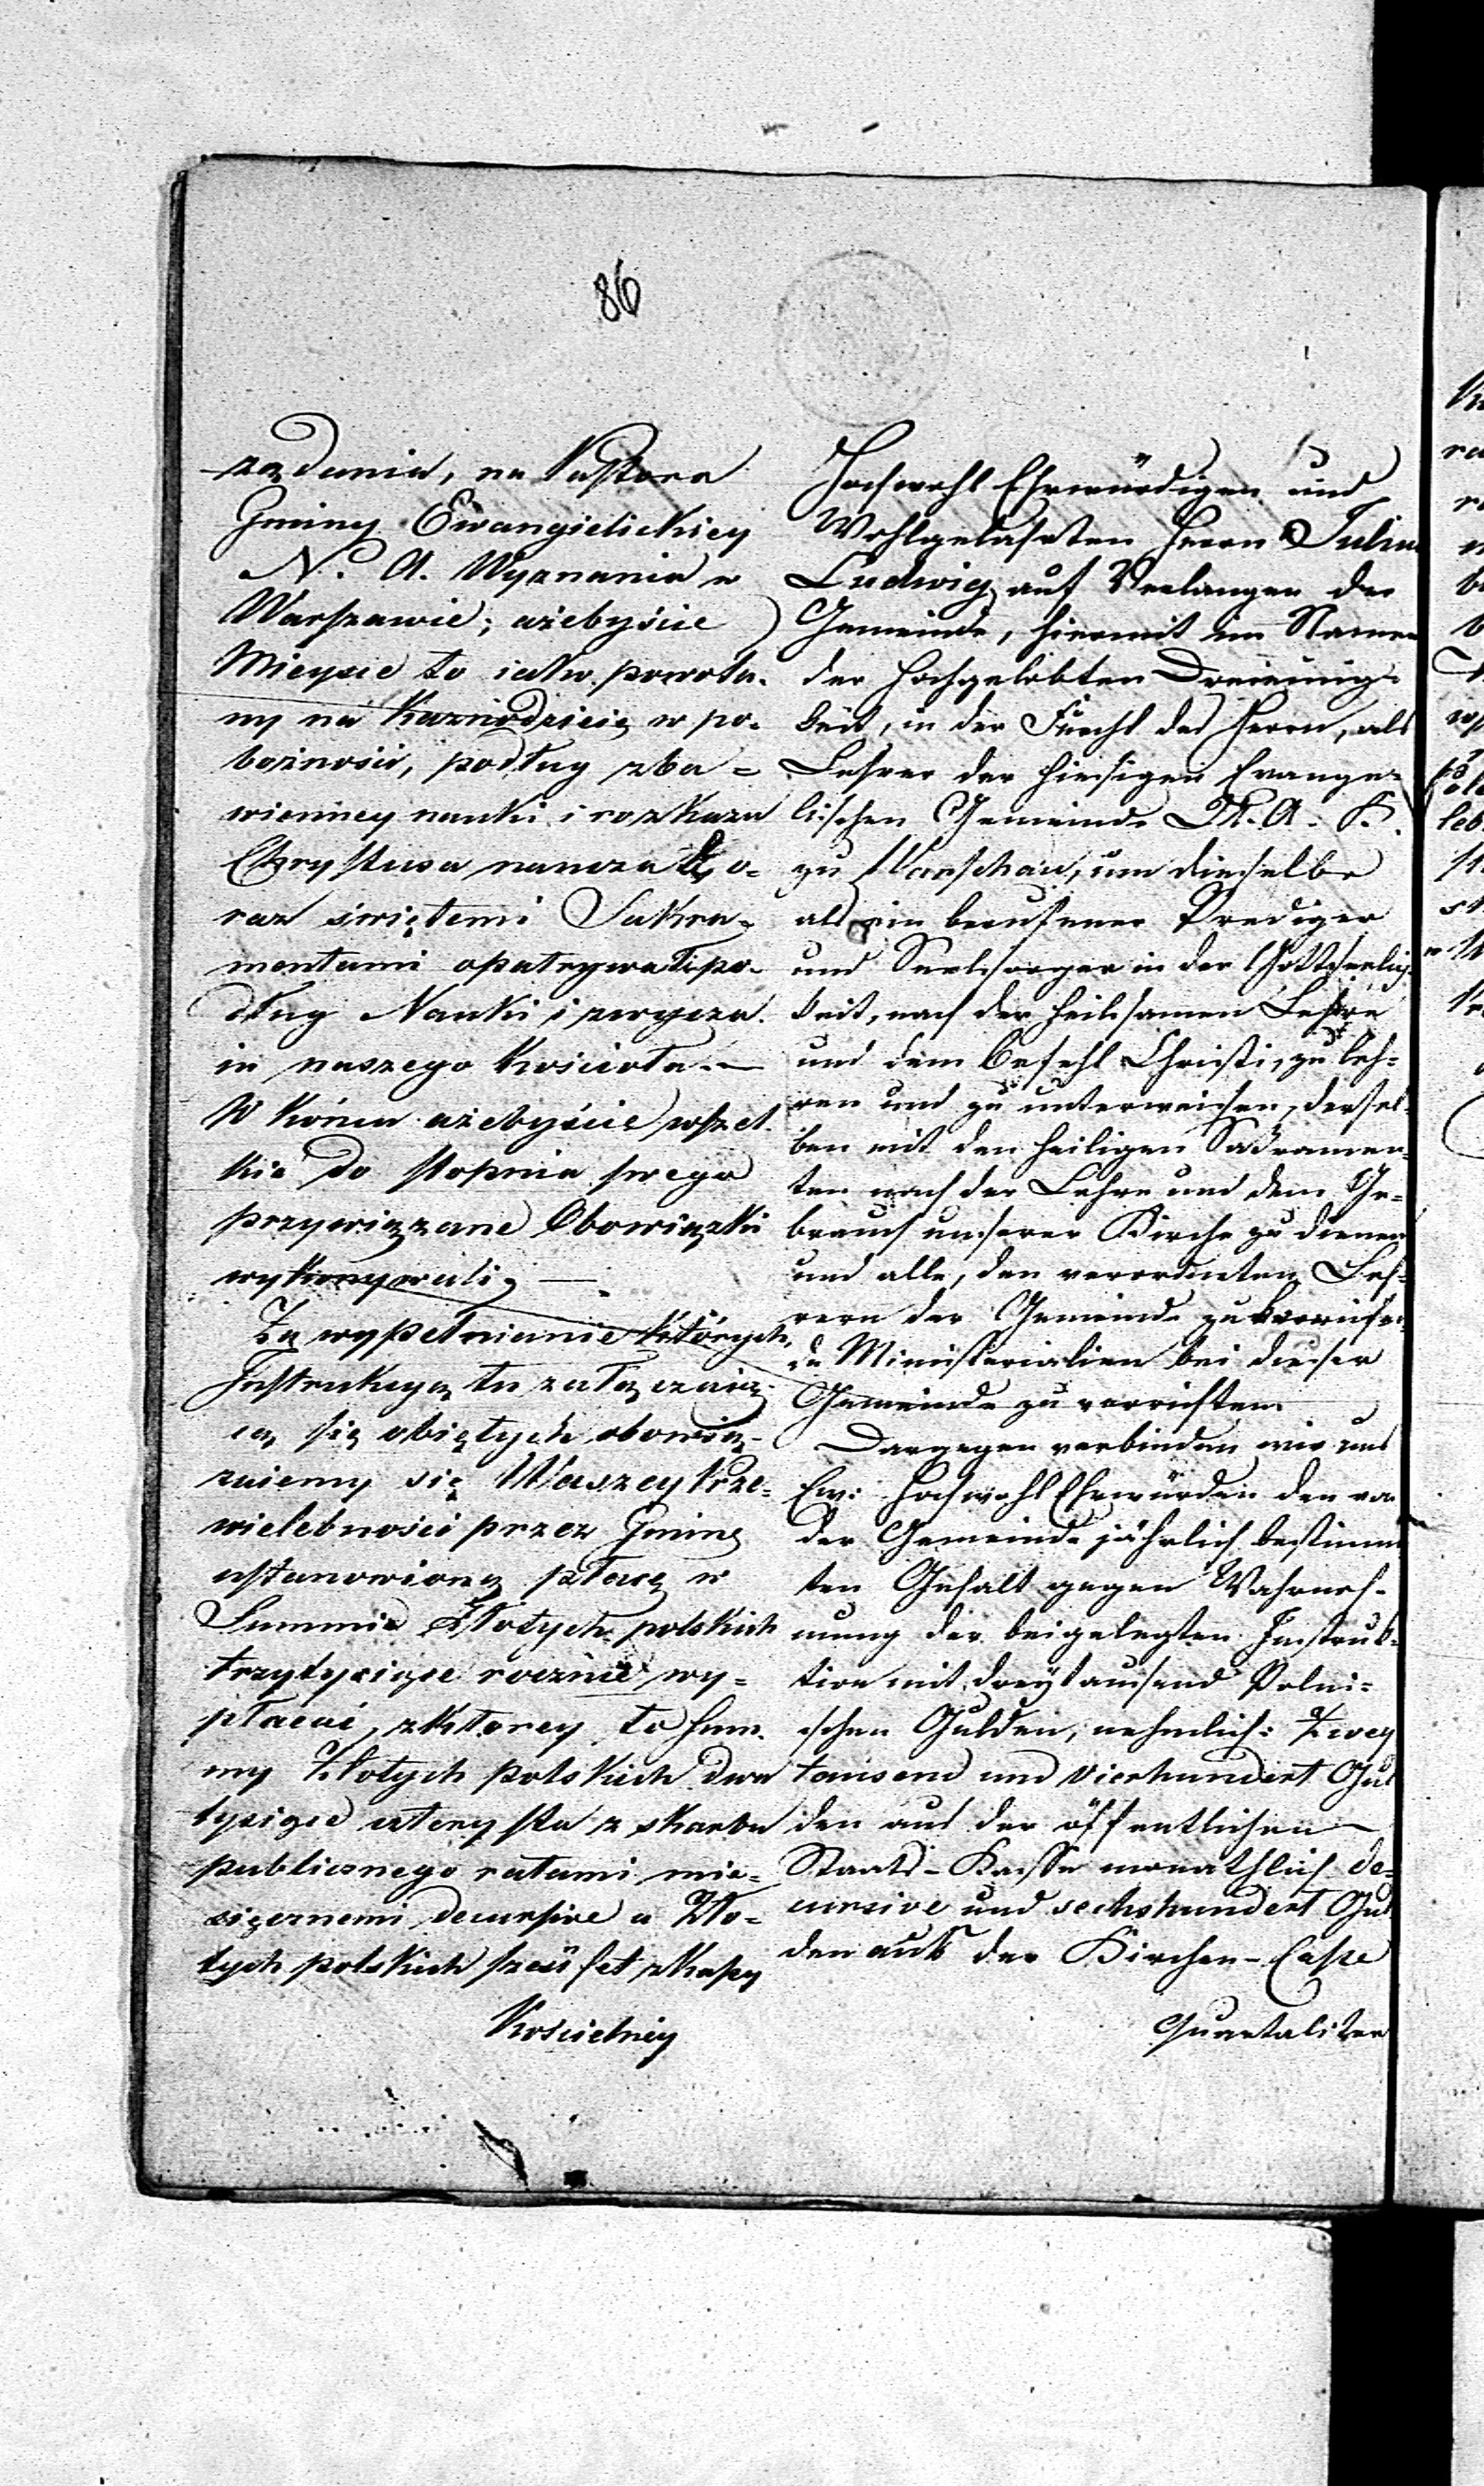 86
żądania, na Pastora
Gminy Ewangielickiey
N. A. Wyznania w
Warszawie; ażebyście
Mieysce to iako powoła-
ny na Kaznodzieię w po-
bożności, podług zba-
wienney nauki i rozkazu
Chrystusa nauczali, o-
raz świętemi Sakra-
mentami opatrywali po-
dług Nauki i zwycza-
iu naszego Kościoła.—
W końcu ażebyście wszel-
kie do stopnia swego
przywiązane Obowiązki
wykonywali, —
Za wypełnianie których,
Instrukcyą tu załączaią-
cą się obiętych obowią-
zuiemy się Waszey Prze-
wielebności przez Gminę
ustanowioną płacę w
Summie Złotych polskich
trzytysiące rocznie wy-
płacać, z ktorey to Sum-
my Złotych polskich dwa
tysiące czterysta z skarbu
publicznego ratami mie-
sięcznemi decursive a Zło-
tych polskich sześćset z kassy
Kościelney
Hochwohl Ehrwürdigen und
Wohlgelahrten Herrn Julius
Ludwig auf Verlangen der
Gemeinde, hiermit im Namen
der Hochgelobten Dreieinig-
keit, in der Furcht des Herrn, als
Lehrer der hiesigen Evange-
lischen Gemeinde A. K.
zu Warschau, um dieselbe
als ein berufener Prediger
und Seelsorger in der Gottseelig-
keit, nach der heilsamen Lehre
und dem Befehl Christi, zu leh-
ren und zu unterweisen, dersel-
ben mit den heiligen Sakramen-
ten nach der Lehre und dem Ge-
brauch unserer Kirche zu dienen
und alle, den verordneten Leh-
rern der Gemeinde
de Ministerialien bei dieser
Gemeinde zu verrichten.
Dargegen verbinden wir uns
Ew: Hochwohl Ehrwürden den von
der Gemeinde jährlich bestimm-
ten Gehalt gegen Wahrneh-
mung der beigelegten Instruk-
tion mit dreytausend Polni-
schen Gulden, nehmlich: Zwey
tausend und vierhundert Gul
den aus der öffentlichen
Staats-Kasse monathlich de-
cursive und sechshundert Gul
den aus der Kirchen-Casse
Quartaliter